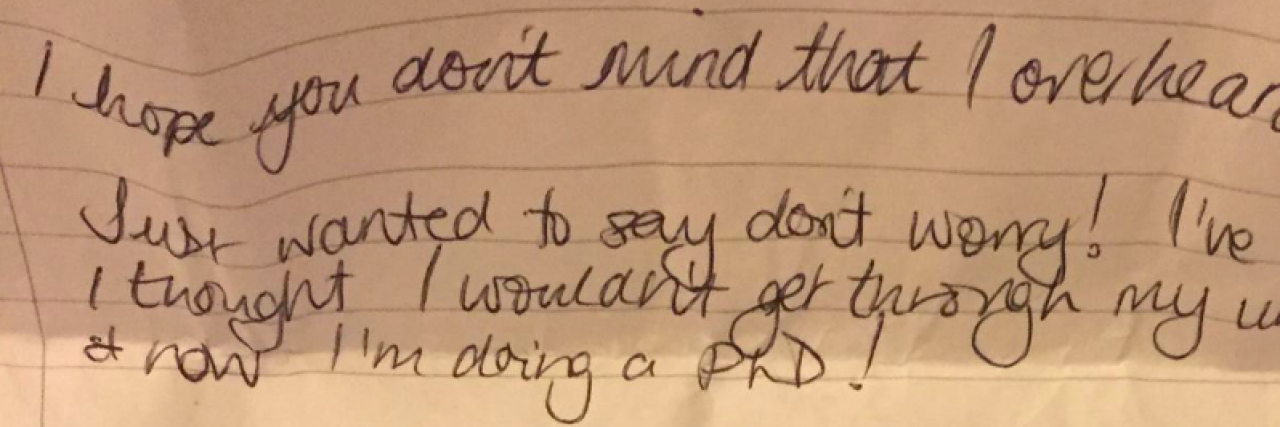 I hope you don't mind that I overhear
Just wanted to say don't worry! I've
I thought I wouldn't get through my
& now I'm doing a PhD!